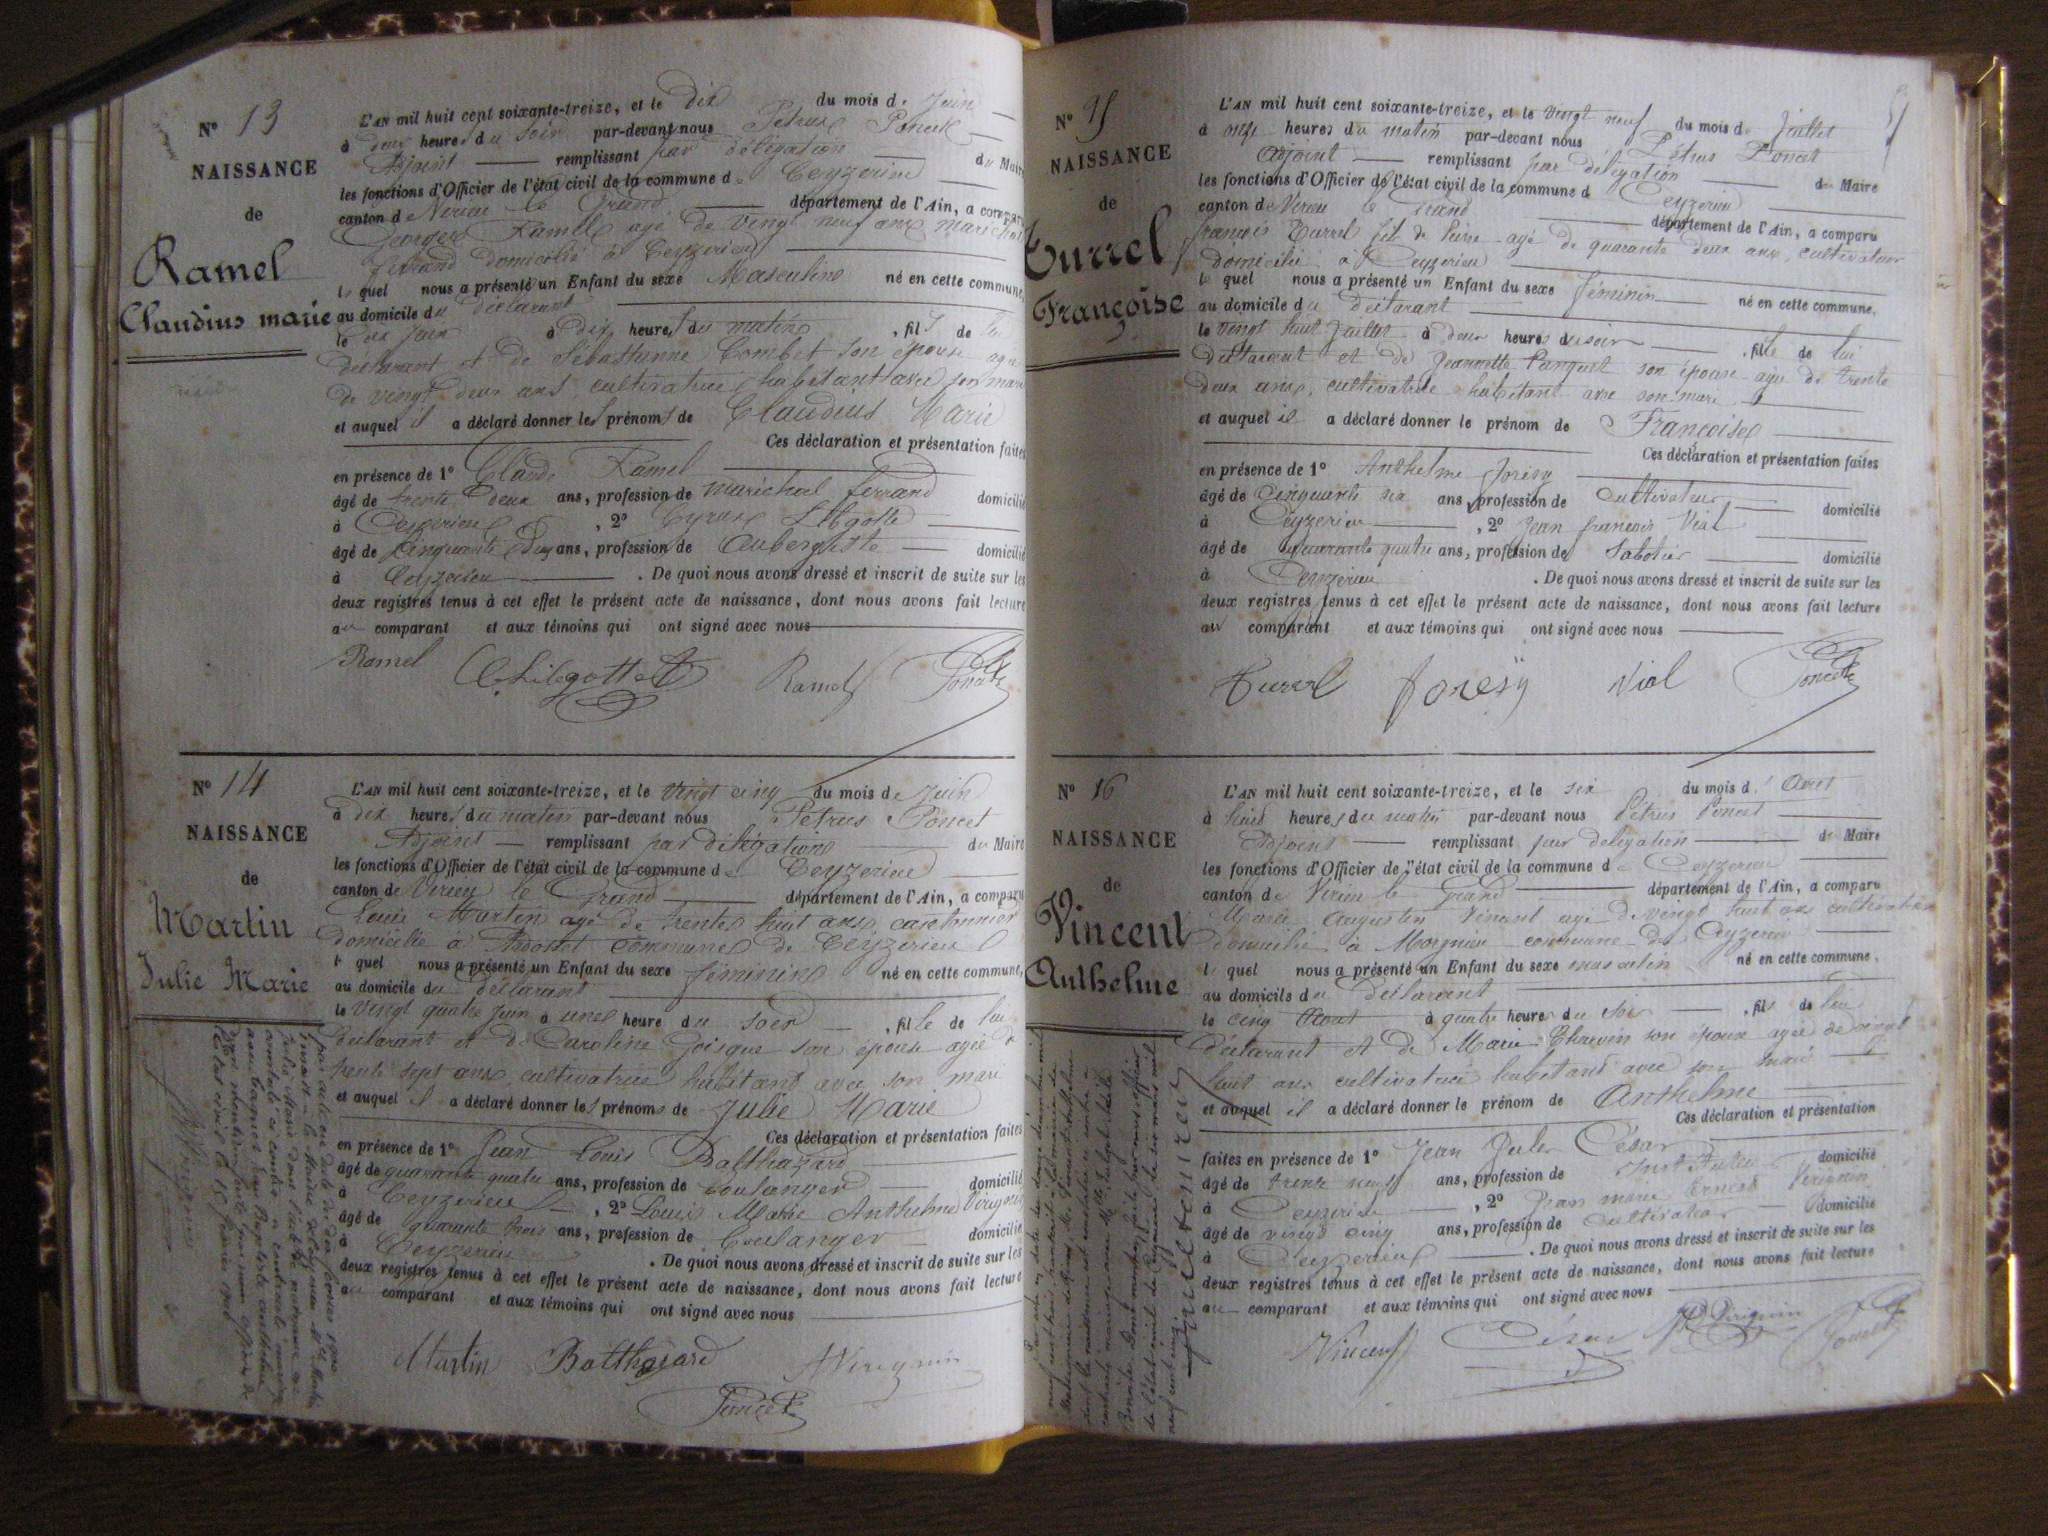 Nº 13
NAISSANCE
de
Ramel
Claudius marie
L'AN mil huit cent soixante-treize, et le dix du mois de Juin
à deux heures du soir par-devant nous Pétrus Poncet
Adjoint remplissant par délégation du Maire
les fonctions d'Officier de l'état civil de la commune de Ceyzerieu
canton de Virieu le Grand département de l'Ain, a comparu
Georges Ramel agé de vingt neuf ans maréchal
ferrand domicilié à Ceyzerieu
le quel nous a présenté un Enfant du sexe Masculin né en cette commune,
au domicile du déclarant
le dix Juin à dix heures du matin, fils de lui
déclarant et de Sébastienne Combet son épouse agée
de vingt deux ans, cultivatrice habitant avec son mari
et auquel il a déclaré donner les prénoms de Claudius Marie
Ces déclaration et présentation faites
en présence de 1º Claude Ramel
âgé de trente deux ans, profession de maréchal ferrand domicilié
à Ceyzerieu, 2º
âgé de Cinquante ans, profession de Aubergiste domicilié
à Ceyzerieu. De quoi nous avons dressé et inscrit de suite sur les
deux registres tenus à cet effet le présent acte de naissance, dont nous avons fait lecture
au comparant et aux témoins qui ont signé avec nous
Ramel Ramel Poncet
Nº 14
NAISSANCE
de
Martin
Julie Marie
L'AN mil huit cent soixante-treize, et le vingt cinq du mois de Juin
à dix heures du matin par-devant nous Pétrus Poncet
Adjoint remplissant par délégation du Maire
les fonctions d'Officier de l'état civil de la commune de Ceyzerieu
canton de Virieu le Grand département de l'Ain, a comparu
Louis Martin agé de trente huit ans, cantonnier
domicilié à Ardosset commune de Ceyzerieu
le quel nous a présenté un Enfant du sexe féminin né en cette commune,
au domicile du déclarant
le vingt quatre Juin à une heure du soir, fille de lui
déclarant et de Caroline son épouse agée de
trente sept ans, cultivatrice habitant avec son mari
et auquel il a déclaré donner les prénoms de Julie Marie
Ces déclaration et présentation faites
en présence de 1º Jean Louis Balthazard
âgé de quarante quatre ans, profession de boulanger domicilié
à Ceyzerieu, 2º Louis Marie Anthelme Virignin
âgé de quarante trois ans, profession de boulanger domicilié
à Ceyzerieu. De quoi nous avons dressé et inscrit de suite sur les
deux registres tenus à cet effet le présent acte de naissance, dont nous avons fait lecture
au comparant et aux témoins qui ont signé avec nous
Martin Balthazard Virignin
Poncet
Nº 15
NAISSANCE
de
Turrel
Françoise
L'AN mil huit cent soixante-treize, et le vingt neuf du mois de Juillet
à onze heures du matin par-devant nous Pétrus Poncet
Adjoint remplissant par délégation du Maire
les fonctions d'Officier de l'état civil de la commune d Ceyzerieu
canton de Virieu le Grand département de l'Ain, a comparu
françois Turrel fils de Pierre agé de quarante deux ans, cultivateur
domicilié à Ceyzerieu
le quel nous a présenté un Enfant du sexe féminin né en cette commune,
au domicile du déclarant
le vingt huit Juillet à deux heures du soir, fille de lui
déclarant et de Jeannette son épouse agée de trente
deux ans, cultivatrice habitant avec son mari
et auquel il a déclaré donner le prénom de Françoise
Ces déclaration et présentation faites
en présence de 1º Anthelme
âgé de Cinquante six ans, profession de Cultivateur domicilié
à Ceyzerieu, 2º Jean françois Vial
âgé de quarante quatre ans, profession de Sabotier domicilié
à Ceyzerieu. De quoi nous avons dressé et inscrit de suite sur les
deux registres tenus à cet effet le présent acte de naissance, dont nous avons fait lecture
au comparant et aux témoins qui ont signé avec nous
Turrel Vial Poncet
Nº 16
NAISSANCE
de
Vincent
Anthelme
L'AN mil huit cent soixante-treize, et le six du mois d'Aout
à huit heures du matin par-devant nous Pétrus Poncet
Adjoint remplissant par délégation du Maire
les fonctions d'Officier de l'état civil de la commune de Ceyzerieu
canton de Virieu le Grand département de l'Ain, a comparu
Marie Augustin Vincent agé de vingt huit ans cultivateur
domicilié à Morgnieu commune de Ceyzerieu
le quel nous a présenté un Enfant du sexe masculin né en cette commune,
au domicile du déclarant
le cinq Aout à quatre heures du soir, fils de lui
déclarant et de Marie son épouse agée de vingt
huit ans cultivatrice habitant avec son mari
et auquel il a déclaré donner le prénom de Anthelme
Ces déclaration et présentation
faites en présence de 1º Jean Jules César
âgé de trente neuf ans, profession de Instituteur domicilié
à Ceyzerieu, 2º Jean marie Ernest Virignin
âgé de vingt cinq ans, profession de Cultivateur domicilié
à Ceyzerieu. De quoi nous avons dressé et inscrit de suite sur les
deux registres tenus à cet effet le présent acte de naissance, dont nous avons fait lecture
au comparant et aux témoins qui ont signé avec nous
Vincent César Virignin Poncet